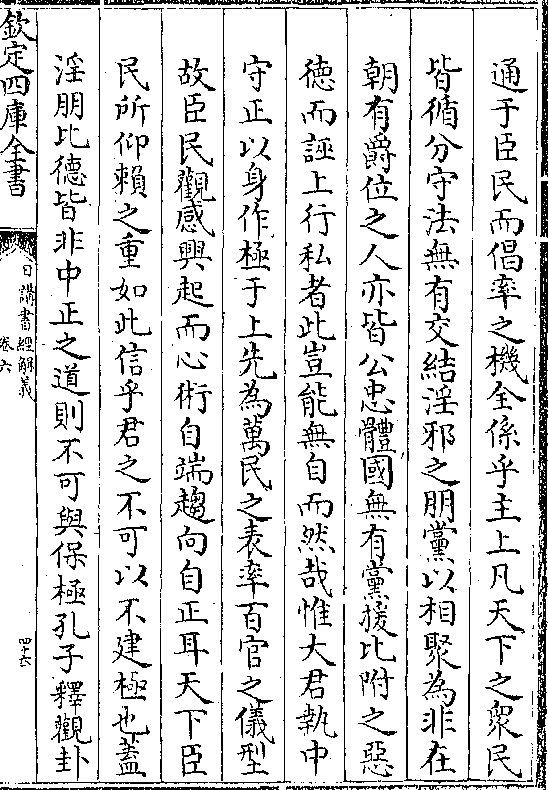 通于臣民而倡率之機全係乎主上凡天下之衆民
皆循分守法無有交結淫邪之朋黨以相聚為非在
朝有爵位之人亦皆公忠體國無有黨援比附之惡
徳而誣上行私者此豈能無自而然哉惟大君執中
守正以身作極于上先為萬民之表率百官之儀型
故臣民觀感興起而心術自端趨向自正耳天下臣
民所仰賴之重如此信乎君之不可以不建極也蓋
淫朋比德皆非中正之道則不可與保極孔子釋觀卦
欽定四庫全書
日講書經解義
卷六
四十六